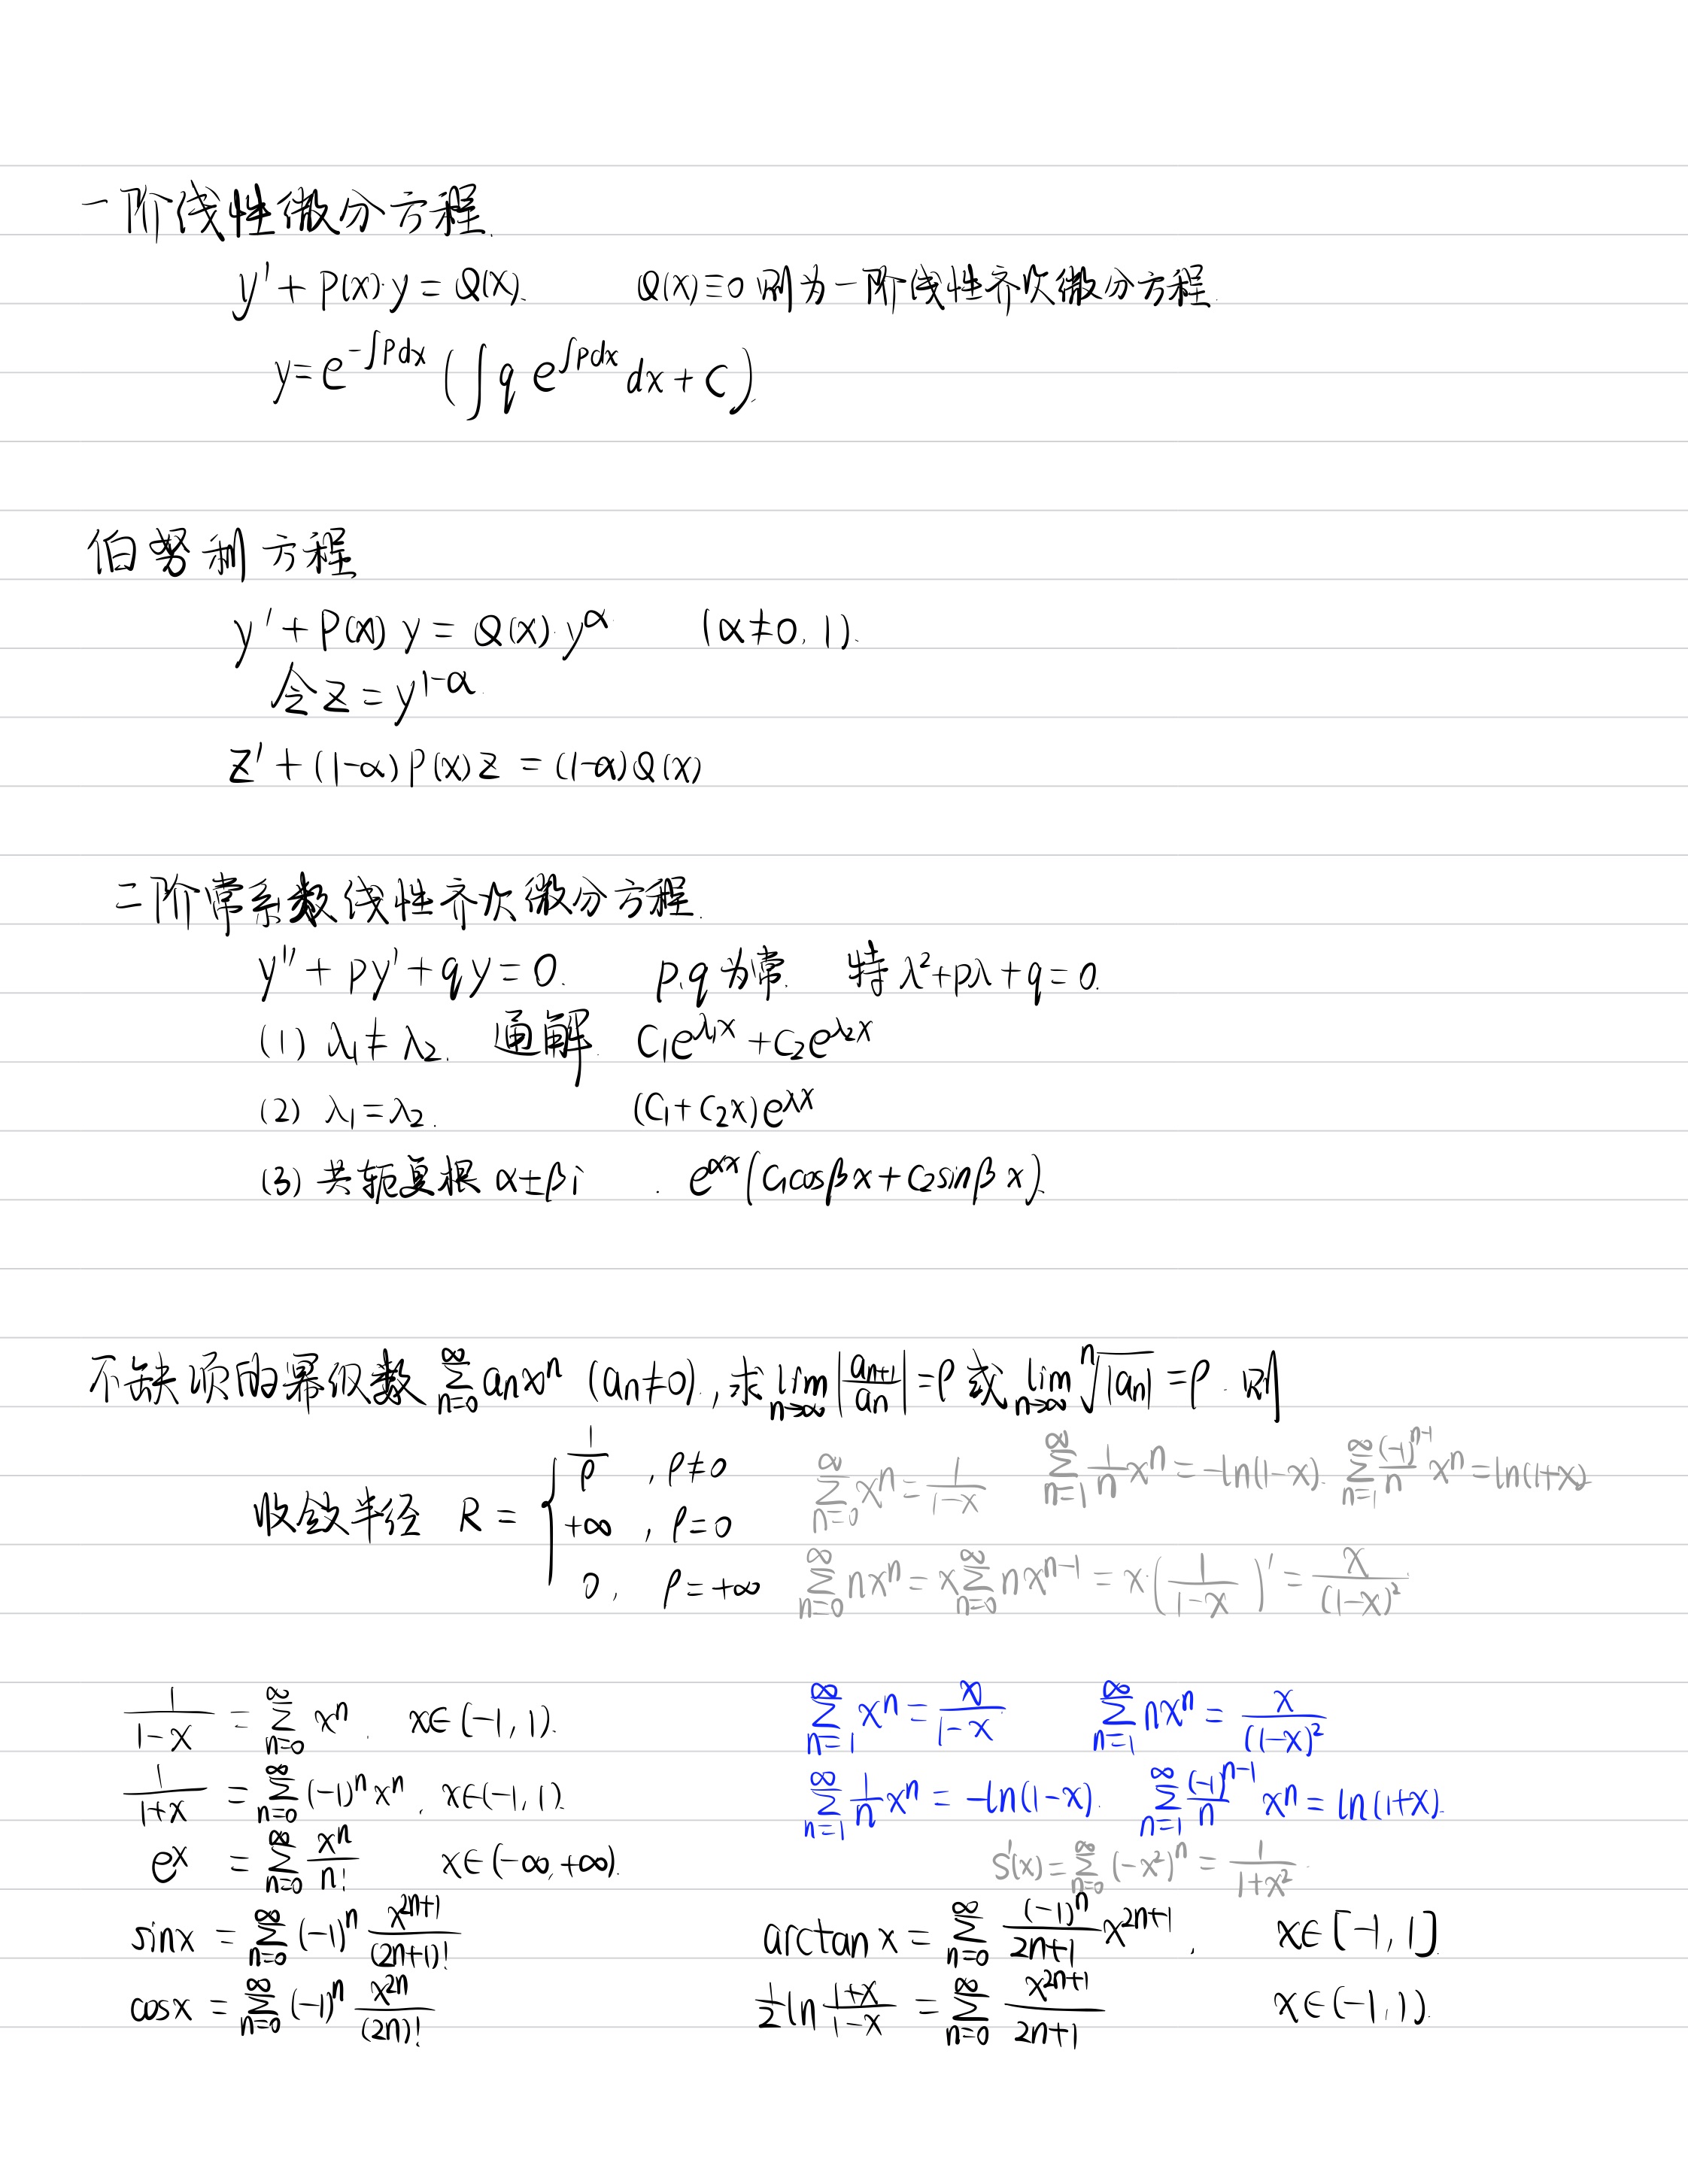 一阶线性微分方程.
y′ + P(x)·y = Q(x).   Q(x)≡0 则为一阶线性齐次微分方程.
y = e^{-∫pdx} (∫ q e^{∫pdx} dx + C).
伯努利方程
y′ + P(x) y = Q(x)·y^α   (α≠0, 1).
令 z = y^{1-α}.
z′ + (1-α) P(x) z = (1-α) Q(x)
二阶常系数线性齐次微分方程.
y″ + py′ + qy = 0.   p.q 为常.   特 λ²+pλ+q = 0.
(1) λ₁ ≠ λ₂.   通解.   C₁e^{λ₁x} + C₂e^{λ₂x}
(2) λ₁ = λ₂.   (C₁ + C₂x) e^{λx}
(3) 共轭复根 α±βi   .   e^{αx} (C₁cosβx + C₂sinβx).
不缺项的幂级数 ∑_{n=0}^{∞} aₙxⁿ (aₙ≠0), 求 lim_{n→∞} |a_{n+1}/aₙ| = ρ 或 lim_{n→∞} ⁿ√|aₙ| = ρ. 则
收敛半径 R = { 1/ρ , ρ≠0
+∞ , ρ=0
0, ρ=+∞
∑_{n=0}^{∞} xⁿ = 1/(1-x)   ∑_{n=1}^{∞} (1/n) xⁿ = -ln(1-x).   ∑_{n=1}^{∞} ((-1)^{n-1}/n) xⁿ = ln(1+x)
∑_{n=0}^{∞} nxⁿ = x∑_{n=0}^{∞} nx^{n-1} = x·(1/(1-x))′ = x/(1-x)²
1/(1-x) = ∑_{n=0}^{∞} xⁿ.   x∈(-1, 1).
∑_{n=1}^{∞} xⁿ = x/(1-x)   ∑_{n=1}^{∞} nxⁿ = x/(1-x)²
1/(1+x) = ∑_{n=0}^{∞} (-1)ⁿ xⁿ.   x∈(-1, 1).
∑_{n=1}^{∞} (1/n) xⁿ = -ln(1-x).   ∑_{n=1}^{∞} ((-1)^{n-1}/n) xⁿ = ln(1+x).
e^x = ∑_{n=0}^{∞} xⁿ/n!   x∈(-∞, +∞).
S′(x) = ∑_{n=0}^{∞} (-x²)ⁿ = 1/(1+x²).
sinx = ∑_{n=0}^{∞} (-1)ⁿ x^{2n+1}/(2n+1)!
arctan x = ∑_{n=0}^{∞} ((-1)ⁿ/(2n+1)) x^{2n+1},   x∈[-1, 1].
cosx = ∑_{n=0}^{∞} (-1)ⁿ x^{2n}/(2n)!
½ ln (1+x)/(1-x) = ∑_{n=0}^{∞} x^{2n+1}/(2n+1)   x∈(-1, 1).